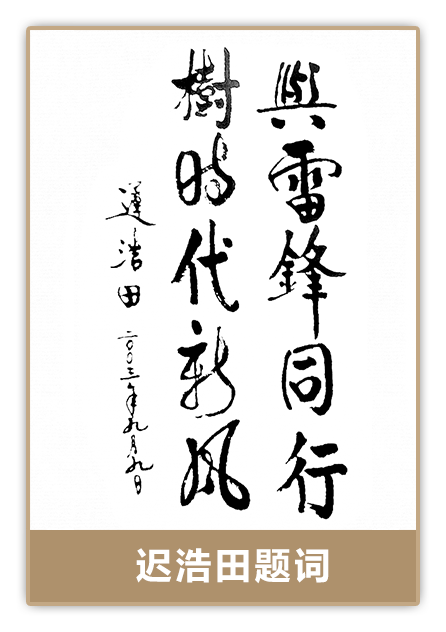 與雷鋒同行
樹時代新風
遲浩田
二〇〇三年九月九日
迟浩田题词